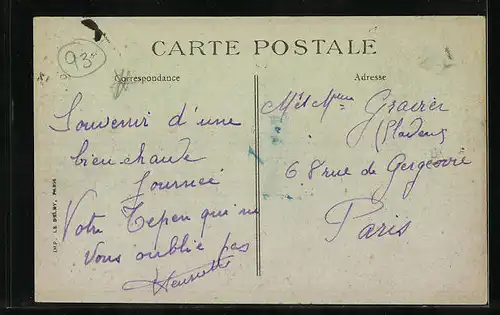 93-
CARTE POSTALE
Correspondance
Adresse
Souvenir d'une
bien chaude
Journée
Votre qui ne
vous oublie pas
Henriette
M et Mme
68 rue de Gergovie
Paris
IMP. LE DELEY, PARIS